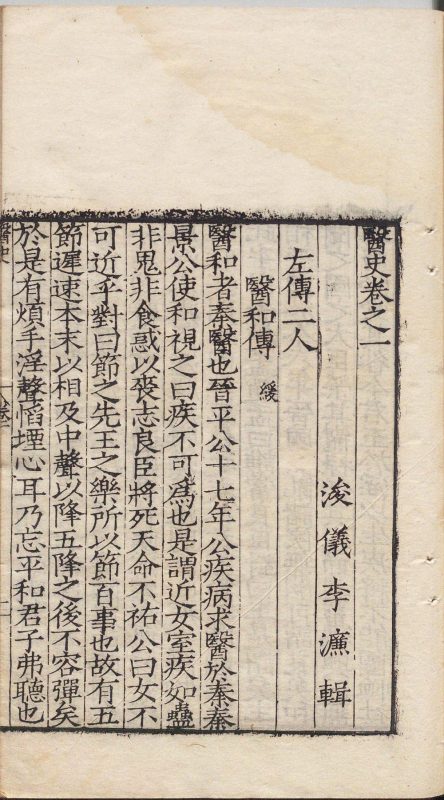 醫史卷之一
浚儀李濂輯
左傳二人
醫和傳 緩
醫和者秦醫也晉平公十七年公疾病求醫於秦秦
景公使和視之曰疾不可為也是謂近女室疾如蠱
非鬼非食惑以喪志良臣將死天命不祐公曰女不
可近乎對曰節之先王之樂所以節百事也故有五
節遲速本末以相及中聲以降五降之後不容彈矣
於是有煩手淫聲慆堙心耳乃忘平和君子弗聽也
醫史
卷一